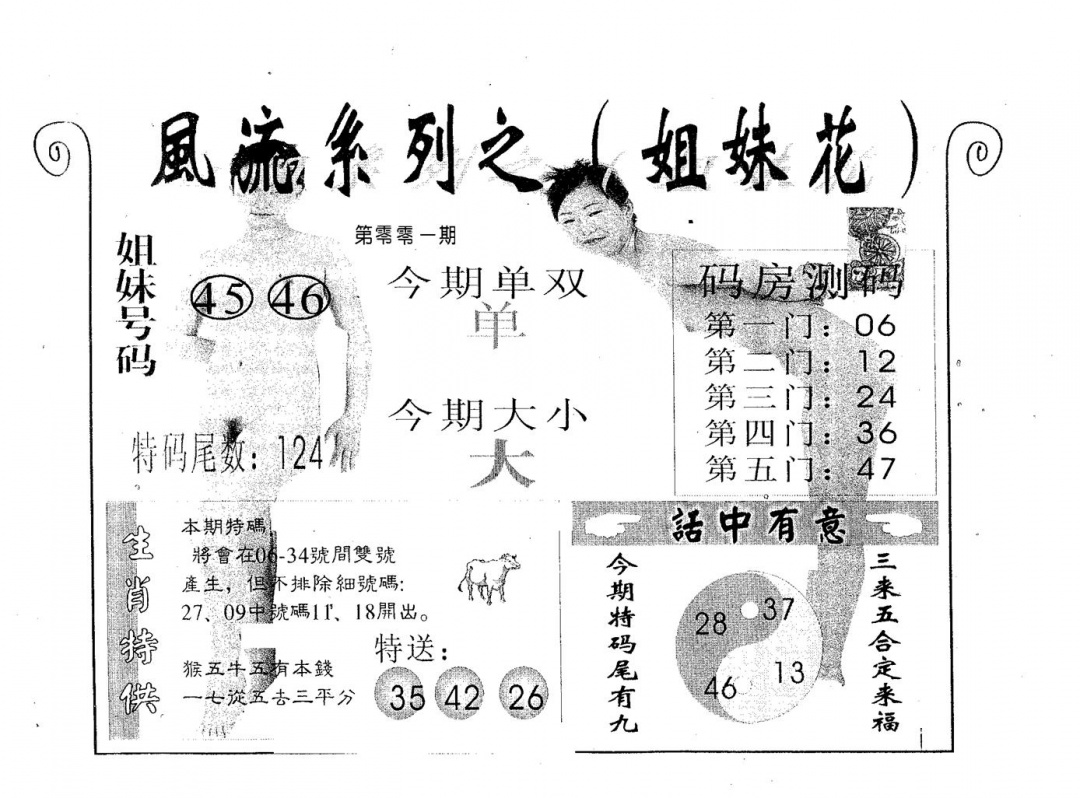 風流系列之（姐妹花）
第零零一期
姐妹号码
45 46
今期单双
单
今期大小
大
特码尾数：124
码房测码
第一门：06
第二门：12
第三门：24
第四门：36
第五门：47
生肖特供
本期特碼,
將會在06-34號間雙號
產生，但不排除細號碼:
27、09中號碼11、18開出。
猴五牛五有本錢
一七從五去三平分
特送：
35 42 26
話中有意
今期特码尾有九
28 37
46 13
三来五合定来福